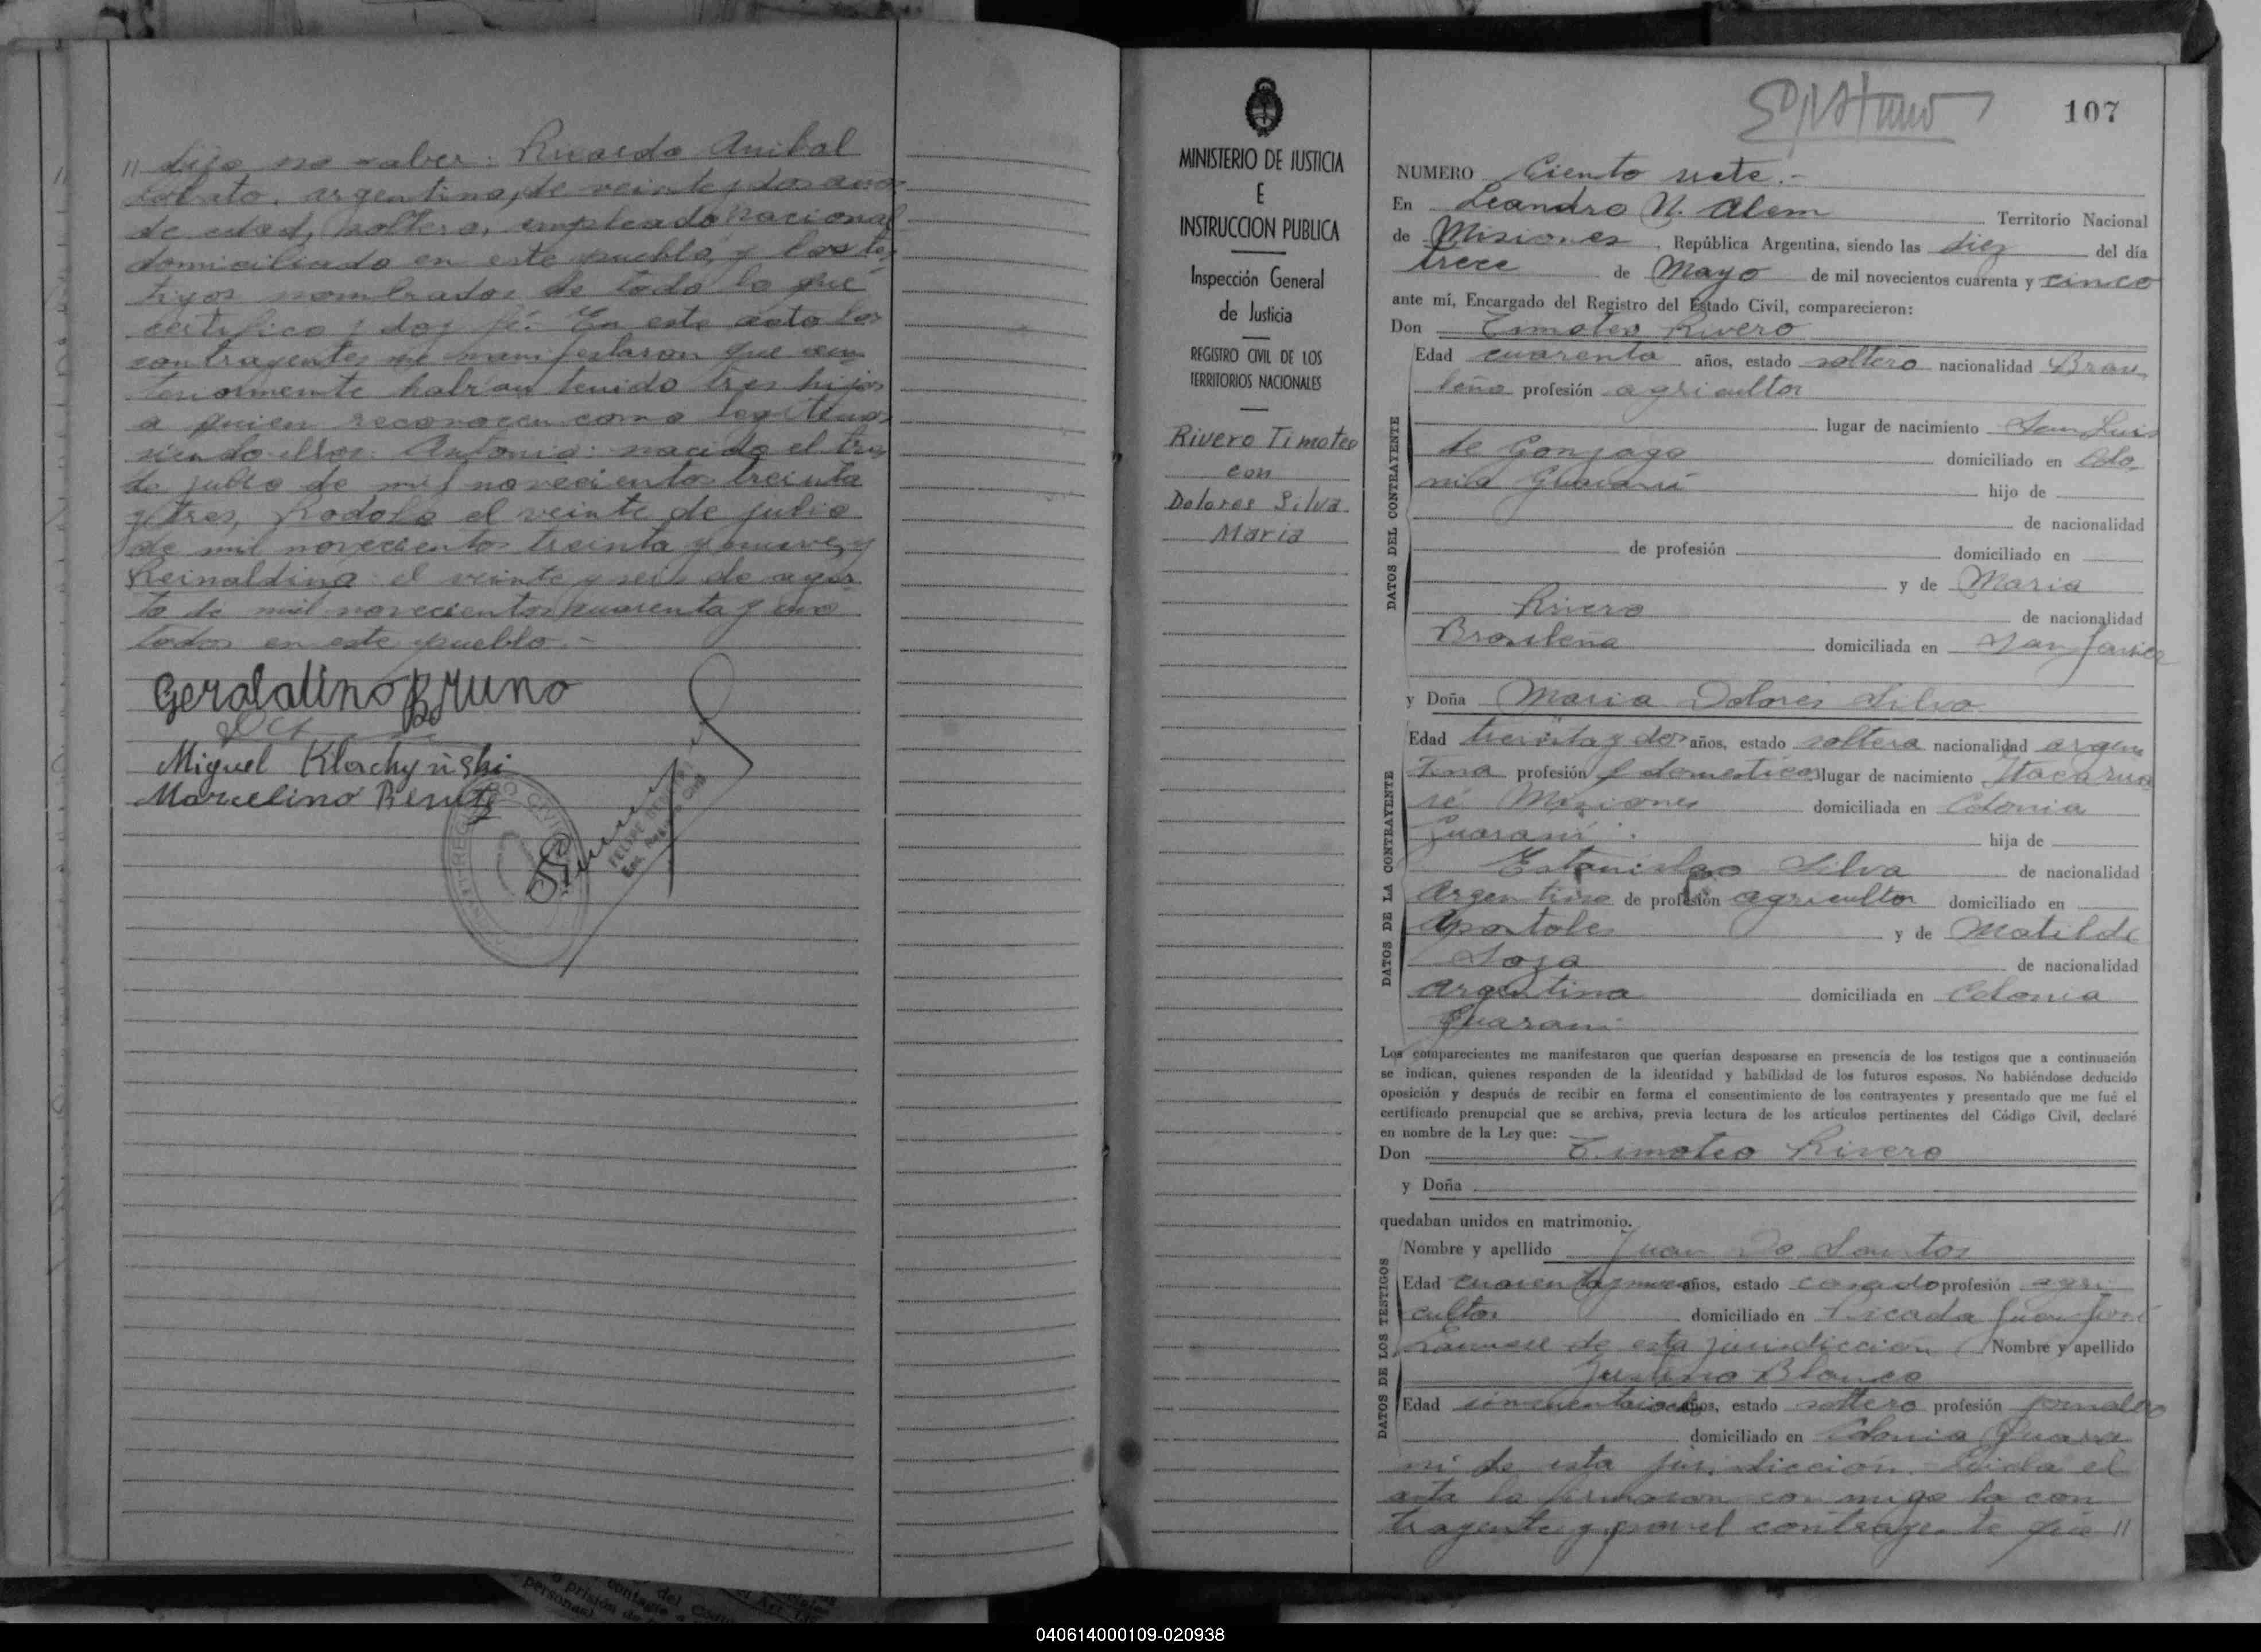 " dijo no saber: Ricardo Anibal
Lobato, argentino, de veinte y dos años
de edad, soltero, empleado nacional
domiciliado en este pueblo, y los tes
tigos nombrados de todo lo que
certifico y doy fé. En este acto los
contrayentes me manifestaron que an
teriormente habrian tenido tres hijos
a quien reconocen como legitimos
siendo ellos: Antonio: nacido el tres
de julio de mil novecientos treinta
y tres, Rodolfo el veinte de julio
de mil novecientos treinta y nueve, y
Reinaldina el veinte y seis de agos
to de mil novecientos cuarenta y uno
todos en este pueblo.-
Geraldino Bruno
Miguel Klachynski
Marcelino Benitez
MINISTERIO DE JUSTICIA
E
INSTRUCCION PUBLICA
Inspección General
de Justicia
REGISTRO CIVIL DE LOS
TERRITORIOS NACIONALES
Rivero Timoteo
con
Dolores Silva
Maria
107
NUMERO Ciento siete.-
En Leandro N. Alem Territorio Nacional
de Misiones, República Argentina, siendo las diez del día
trece de Mayo de mil novecientos cuarenta y cinco
ante mí, Encargado del Registro del Estado Civil, comparecieron:
Don Timoteo Rivero
DATOS DEL CONTRAYENTE
Edad cuarenta años, estado soltero nacionalidad Brasi
leño profesión agricultor
lugar de nacimiento San Luis
de Gonzaga domiciliado en Colo
nia Guarani hijo de
de nacionalidad
de profesión domiciliado en
y de Maria
Rivero de nacionalidad
Brasileña domiciliada en San Javier
y Doña Maria Dolores Silva
DATOS DE LA CONTRAYENTE
Edad treinta y dos años, estado soltera nacionalidad argen
tina profesión domestica lugar de nacimiento Itacarua
ré Misiones domiciliada en Colonia
Guarani. hija de
Estanislao Silva de nacionalidad
Argentino de profesión agricultor domiciliado en
Apostoles y de Matilde
Soza de nacionalidad
argentina domiciliada en Colonia
Guarani
Los comparecientes me manifestaron que querían desposarse en presencia de los testigos que a continuación
se indican, quienes responden de la identidad y habilidad de los futuros esposos. No habiéndose deducido
oposición y después de recibir en forma el consentimiento de los contrayentes y presentado que me fué el
certificado prenupcial que se archiva, previa lectura de los artículos pertinentes del Código Civil, declaré
en nombre de la Ley que:
Don Timoteo Rivero
y Doña
quedaban unidos en matrimonio.
DATOS DE LOS TESTIGOS
Nombre y apellido Juan Do Santos
Edad cuarenta y nueve años, estado casado profesión agri
cultor domiciliado en Picada Juan José
de esta jurisdiccion Nombre y apellido
Justino Blanco
Edad años, estado soltero profesión jornalero
domiciliado en Colonia Guara
ni de esta jurisdicción. Leida el
acta la firmaron con migo la con
trayente y por el contrayente que "
040614000109-020938